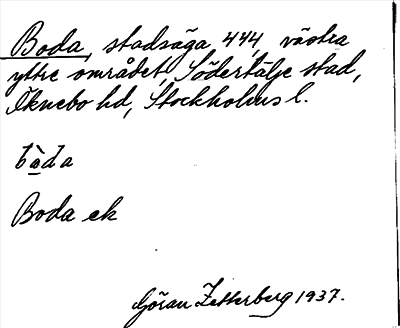 Boda, stadsäga 444, västra
yttre området, Södertälje stad,
Öknebo hd, Stockholms l.
bòda
Boda ek
Göran Zetterberg 1937.